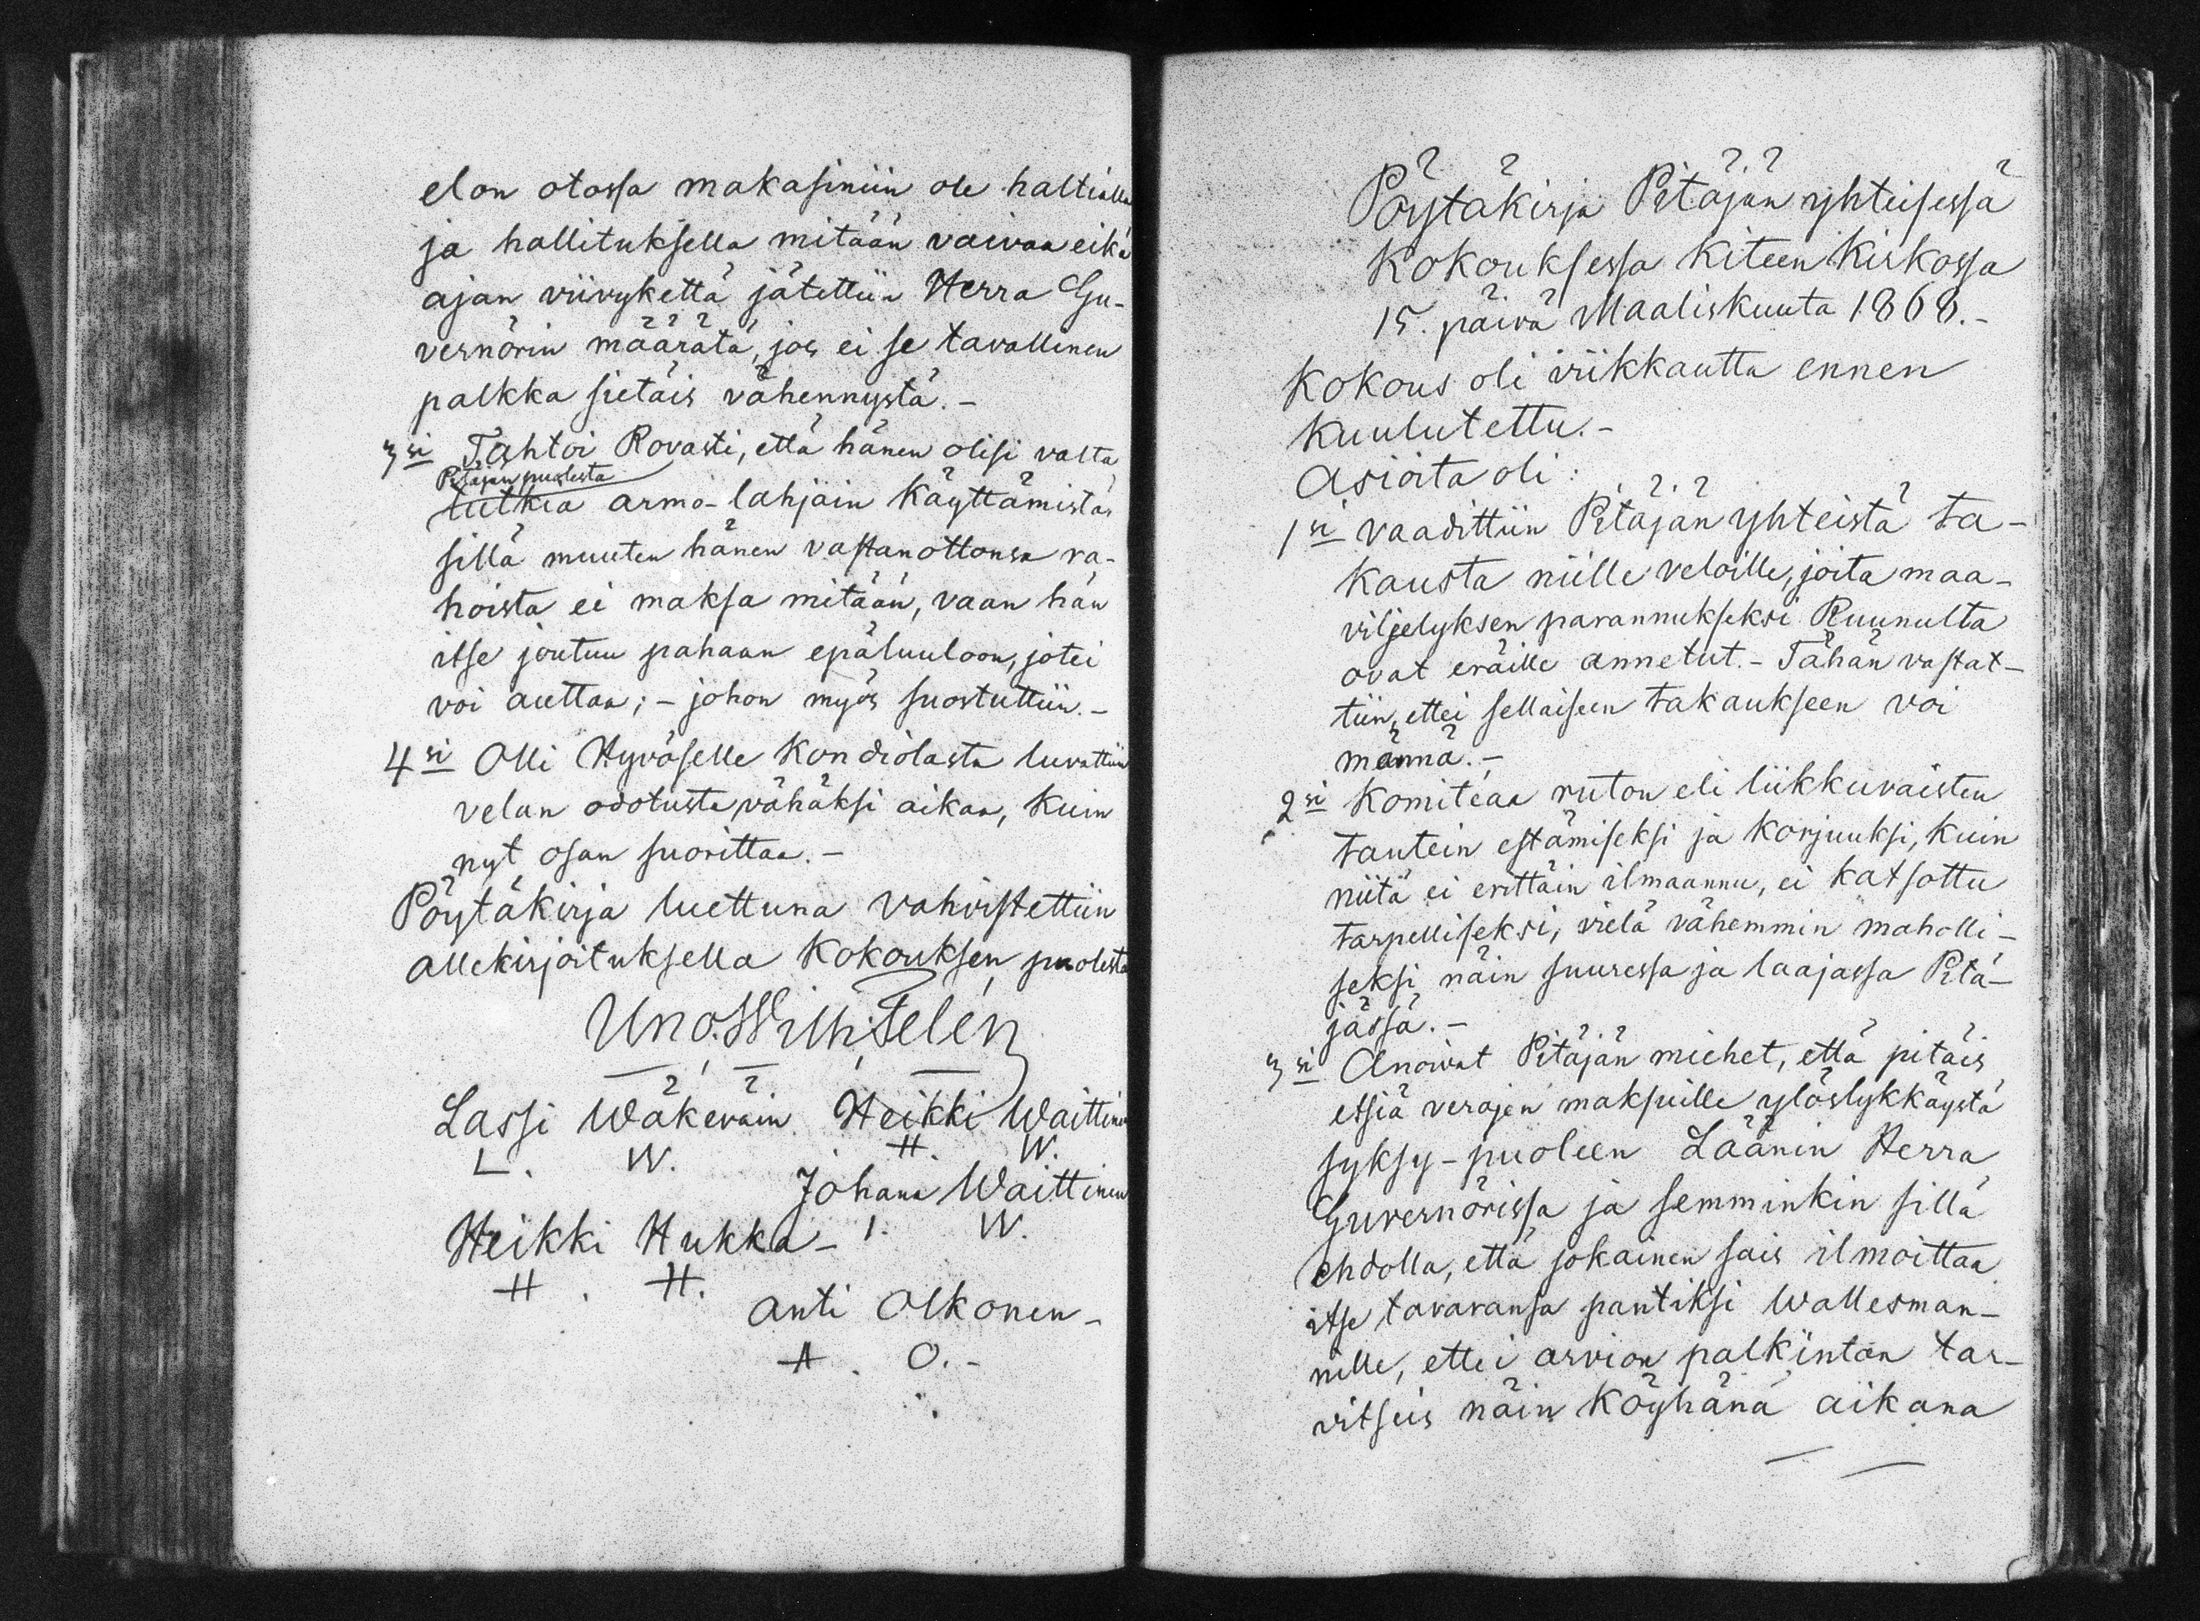 elon otossa makasiniin ole haltialla
ja hallituksella mitään vaivaa eikä
ajan viivykettä jätettiin Herra Gu-
vernörin määrätä, jos ei se tavallinen
palkka sietäis vähennystä. -
3 si Tahtoi Rovasti, että hänen olisi valta
Pitäjän puolesta
tutkia armo-lahjain käyttämistä,
sillä muuten hänen vastanottonsa ra-
hoista ei maksa mitään, vaan hän
itse joutuu pahaan epäluuloon, jotei
voi auttaa; - johon myös suostuttiin. -
4 si Olli Hyväselle Kondiolasta luvattiin
velan odotusta vähäksi aikaa, kuin
nyt osan suorittaa. -
Pöytäkirja luettuna vahvistettiin
allekirjoituksella Kokouksen puolesta
Uno. Wilh; Telén
Lassi Wäkeväin Heikki Waittinen
L. W. H. W.
Johana Waittinen
Heikki Hukka - I. W.
H. H.
Anti Olkonen -
A. O. -
Pöytäkirja Pitäjän yhteisessä
Kokouksessa Kiteen Kirkossa
15. päivä Maaliskuuta 1868. -
Kokous oli viikkautta ennen
kuulutettu. -
Asioita oli:
1 si vaadittiin Pitäjän yhteistä ta-
kausta niille veloille, joita maa-
viljelyksen parannukseksi Ruunulta
ovat eräille annetut. - Tähän vastat-
tiin, ettei sellaiseen takaukseen voi
männä. -
2 si Komiteaa ruton eli liikkuvaisten
tautein estämiseksi ja korjuuksi, kuin
niitä ei erittäin ilmaannu, ei katsottu
tarpelliseksi, vielä vähemmin maholli-
seksi näin suuressa ja laajassa Pitä-
jässä. -
3 si Anoivat Pitäjän miehet, että pitäis
etsiä verojen maksuille ylöslykkäystä
syksy-puoleen Läänin Herra
Guvernörissa ja semminkin sillä
ehdolla, että jokainen sais ilmoittaa
itse tavaransa pantiksi Wallesman-
nille, ettei arvion palkintoa tar-
vitseis näin köyhänä aikana